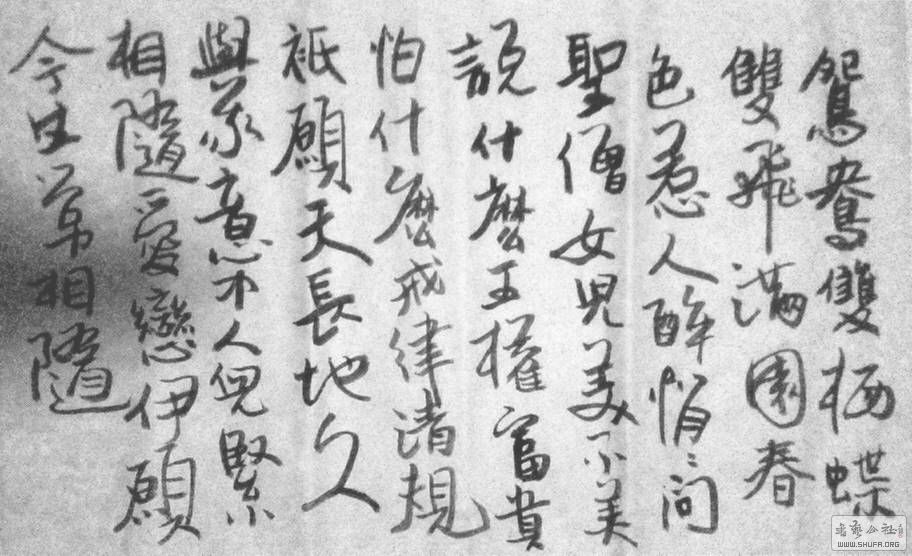 鴛鴦雙栖蝶
雙飛滿園春
色惹人醉悄〻问
聖僧女兒美不美
說什麽王權富貴
怕什麽戒律清規
祇願天長地久
與我意中人兒緊
相隨愛戀伊願
今生常相隨
書藝公社
WWW.SHUFA.ORG